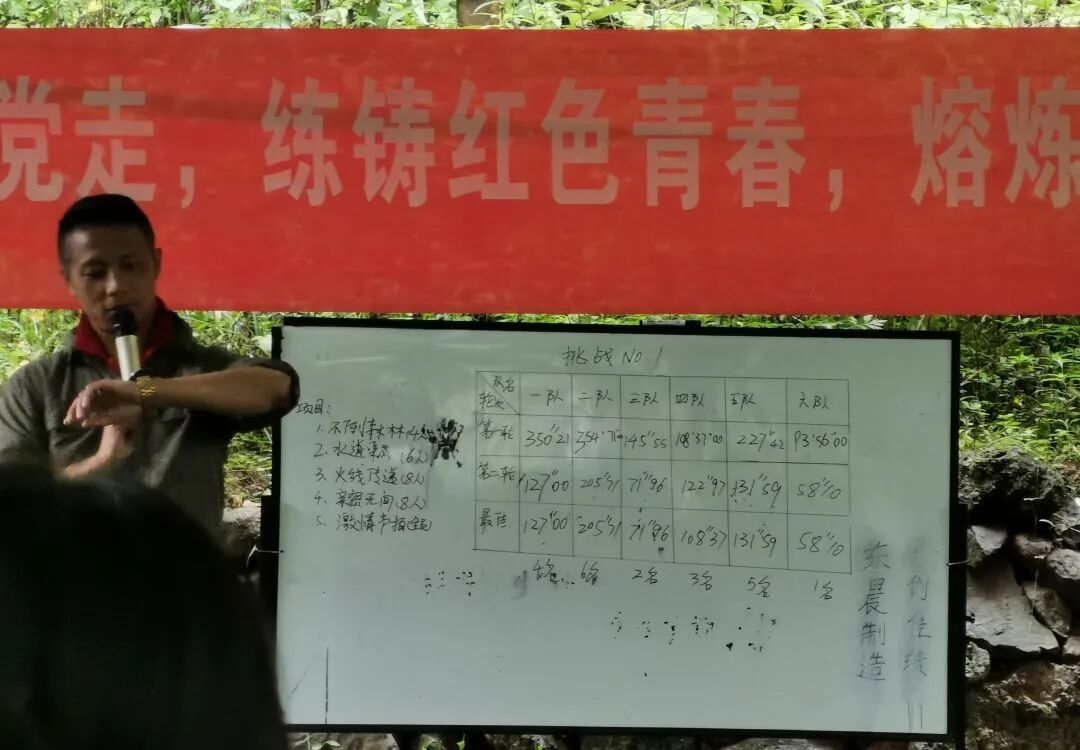 党走，练铸红色青春，熔炼
挑战 NO.1
项目：
1. 不倒森林
2. 水道
3. 火线传递(8人)
4. 亲密无间(8人)
5. 激情节拍
队名 一队 二队 三队 四队 五队 六队
轮次
第一轮 350"21 145"55 108'37"00 227"42
第二轮 127"00 205"71 71"96 122"97 131"59 58"10
最佳 127"00 205"71 71"96 108"37 131"59 58"10
4名 6名 2名 3名 5名 1名
东晨制造
创佳绩